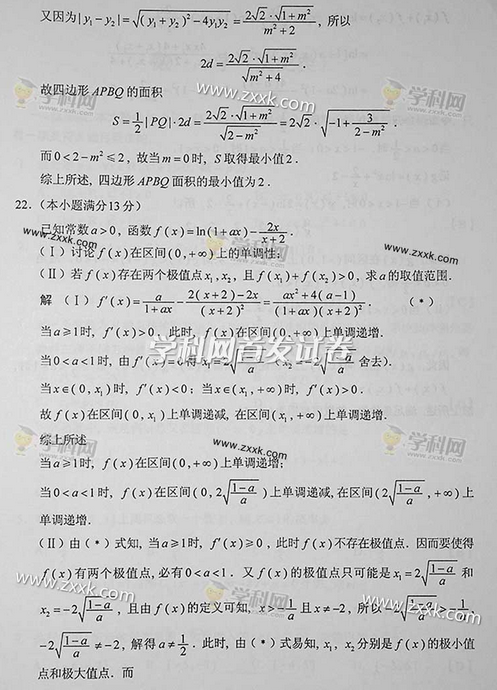 又因为|y₁-y₂|=√((y₁+y₂)²-4y₁y₂)=2√2·√(1+m²)/(m²+2), 所以
2d=2√2·√(1+m²)/√(m²+4).
故四边形APBQ的面积
S=1/2|PQ|·2d=2√2·√(1+m²)/√(2-m²)=2√2·√(-1+3/(2-m²)).
而0<2-m²≤2, 故当m=0时, S取得最小值2.
综上所述, 四边形APBQ面积的最小值为2.
22. (本小题满分13分)
已知常数a>0, 函数f(x)=ln(1+ax)-2x/(x+2).
(Ⅰ)讨论f(x)在区间(0,+∞)上的单调性;
(Ⅱ)若f(x)存在两个极值点x₁,x₂, 且f(x₁)+f(x₂)>0, 求a的取值范围.
解 (Ⅰ) f′(x)=a/(1+ax)-(2(x+2)-2x)/(x+2)²=(ax²+4(a-1))/((1+ax)(x+2)²). (*)
当a≥1时, f′(x)>0, 此时, f(x)在区间(0,+∞)上单调递增.
当0<a<1时, 由f′(x)=0得x₁=2√((1-a)/a) (x₂=-2√((1-a)/a)舍去).
当x∈(0,x₁)时, f′(x)<0; 当x∈(x₁,+∞)时, f′(x)>0.
故f(x)在区间(0,x₁)上单调递减, 在区间(x₁,+∞)上单调递增.
综上所述
当a≥1时, f(x)在区间(0,+∞)上单调递增;
当0<a<1时, f(x)在区间(0,2√((1-a)/a))上单调递减,在区间(2√((1-a)/a),+∞)上
单调递增.
(Ⅱ)由(*)式知, 当a≥1时, f′(x)≥0, 此时f(x)不存在极值点. 因而要使得
f(x)有两个极值点,必有0<a<1. 又f(x)的极值点只可能是x₁=2√((1-a)/a)和
x₂=-2√((1-a)/a), 且由f(x)的定义可知, x>-1/a且x≠-2, 所以-2√((1-a)/a)>-1/a,
-2√((1-a)/a)≠-2, 解得a≠1/2. 此时, 由(*)式易知, x₁, x₂分别是f(x)的极小值
点和极大值点. 而
学科网
www.zxxk.com
学科网首发试卷